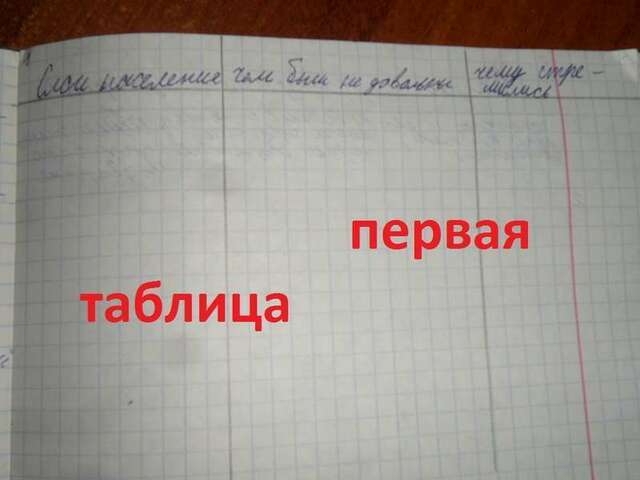 Слои население чем были не довольны чему стре-
мились
первая
таблица